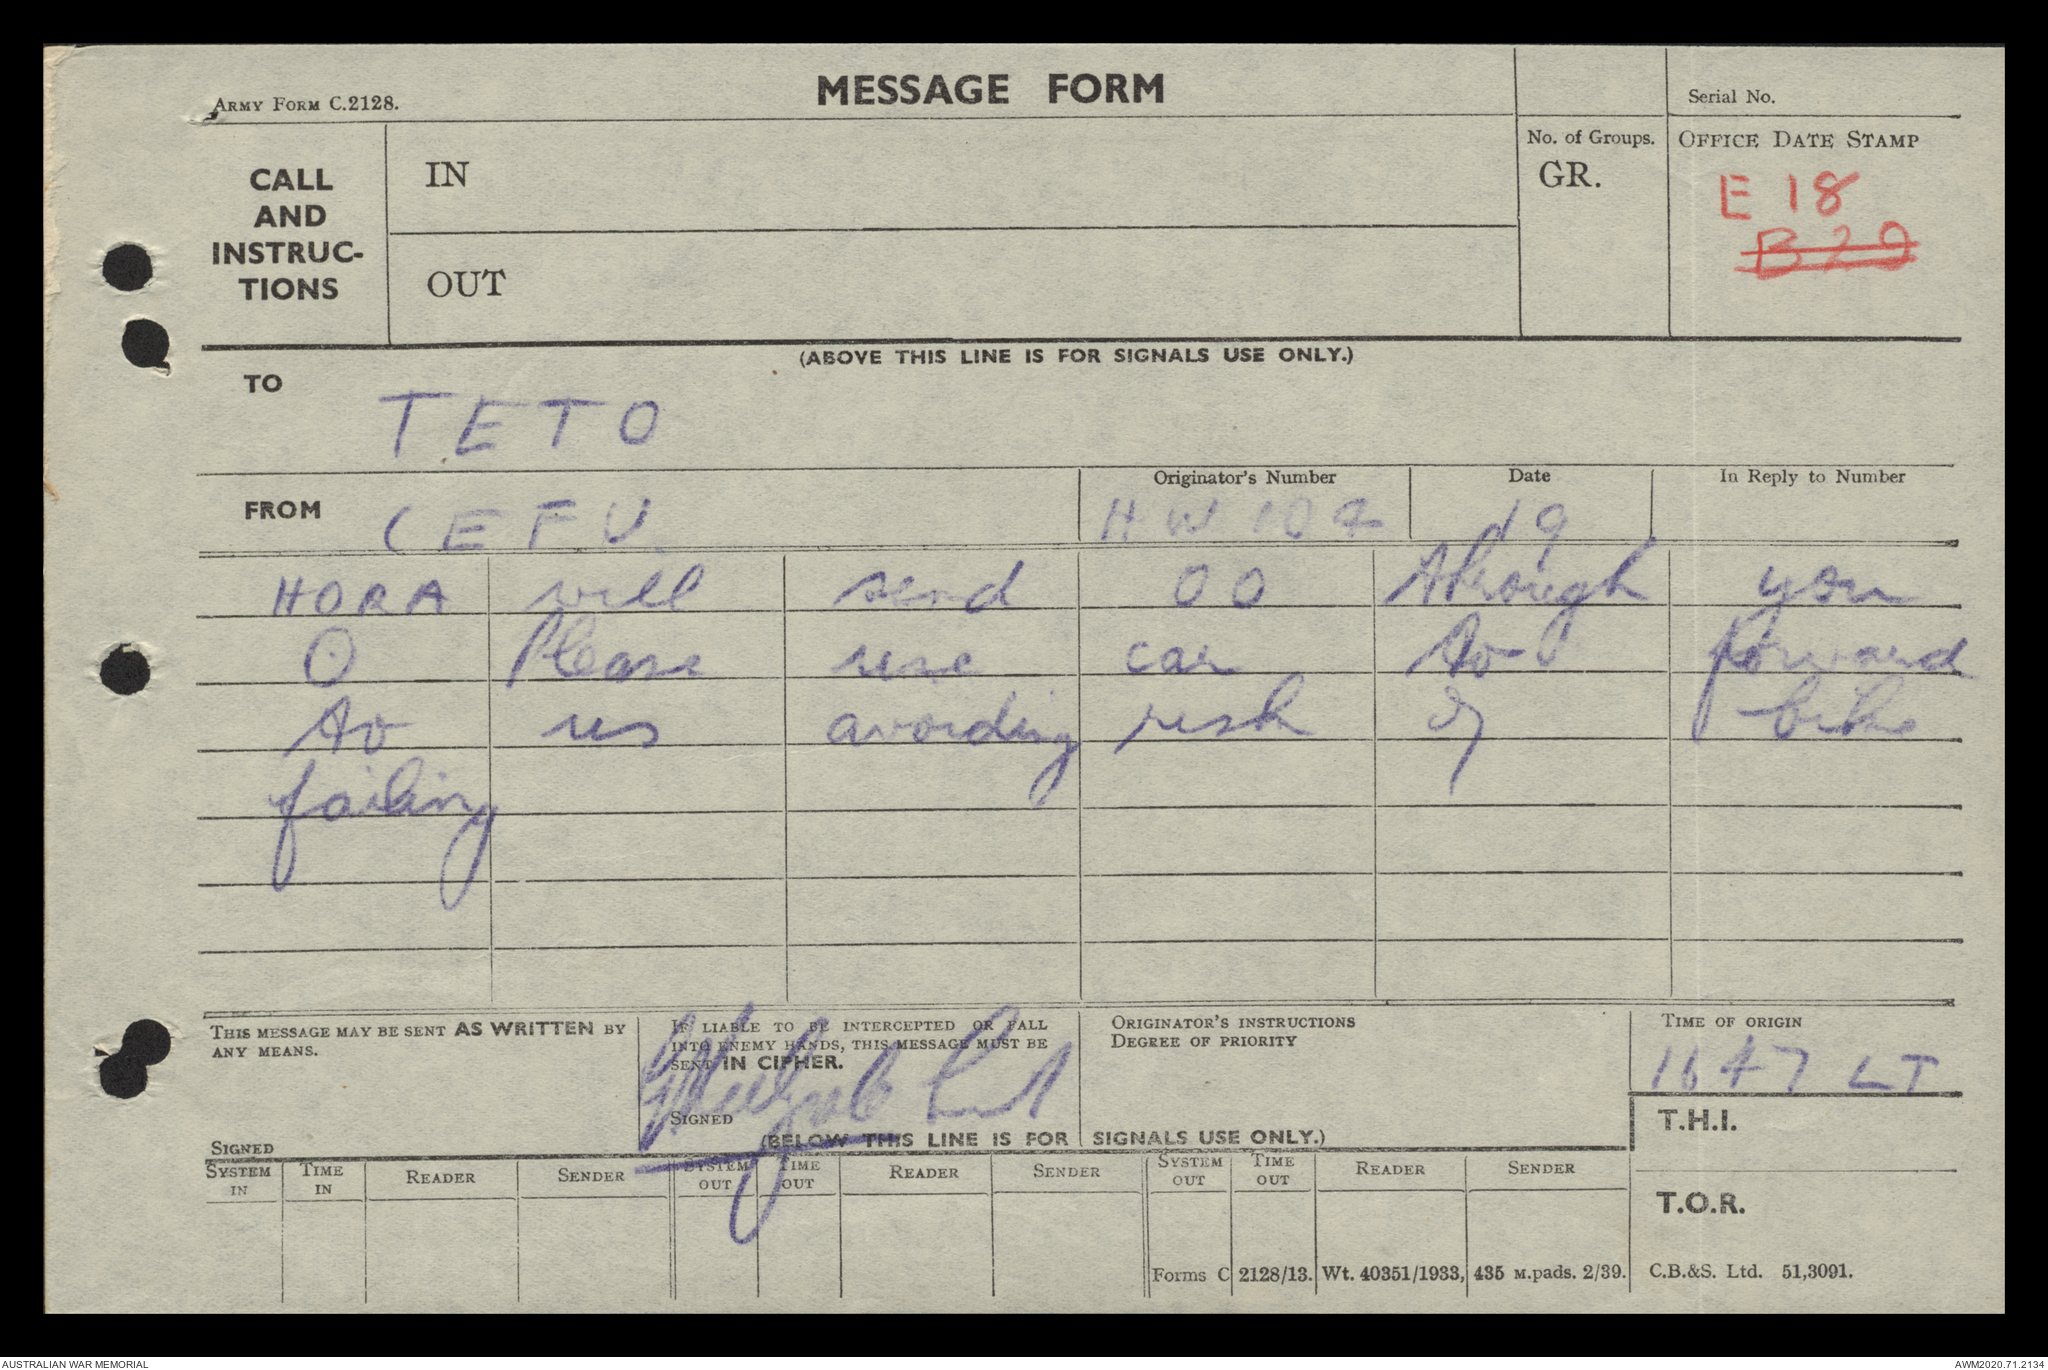 ARMY FORM C.2128.
MESSAGE FORM
Serial No.
CALL AND INSTRUC-TIONS
IN
OUT
No. of Groups.
GR.
OFFICE DATE STAMP
E 18
B20
(ABOVE THIS LINE IS FOR SIGNALS USE ONLY.)
TO
TETO
FROM
CEFU
Originator's Number
HW 104
Date
19
In Reply to Number
HORA will send OO through you
O Please use car to forward
to us avoiding risk of bike
failing
THIS MESSAGE MAY BE SENT AS WRITTEN BY
ANY MEANS.
SIGNED
IF LIABLE TO BE INTERCEPTED OR FALL
INTO ENEMY HANDS, THIS MESSAGE MUST BE
SENT IN CIPHER.
SIGNED
ORIGINATOR'S INSTRUCTIONS
DEGREE OF PRIORITY
TIME OF ORIGIN
1647 LT
(BELOW THIS LINE IS FOR SIGNALS USE ONLY.)
T.H.I.
T.O.R.
SYSTEM IN
TIME IN
READER
SENDER
SYSTEM OUT
TIME OUT
READER
SENDER
SYSTEM OUT
TIME OUT
READER
SENDER
Forms C 2128/13. Wt. 40351/1933, 435 M.pads. 2/39. C.B.&S. Ltd. 51,3091.
AUSTRALIAN WAR MEMORIAL
AWM2020.71.2134